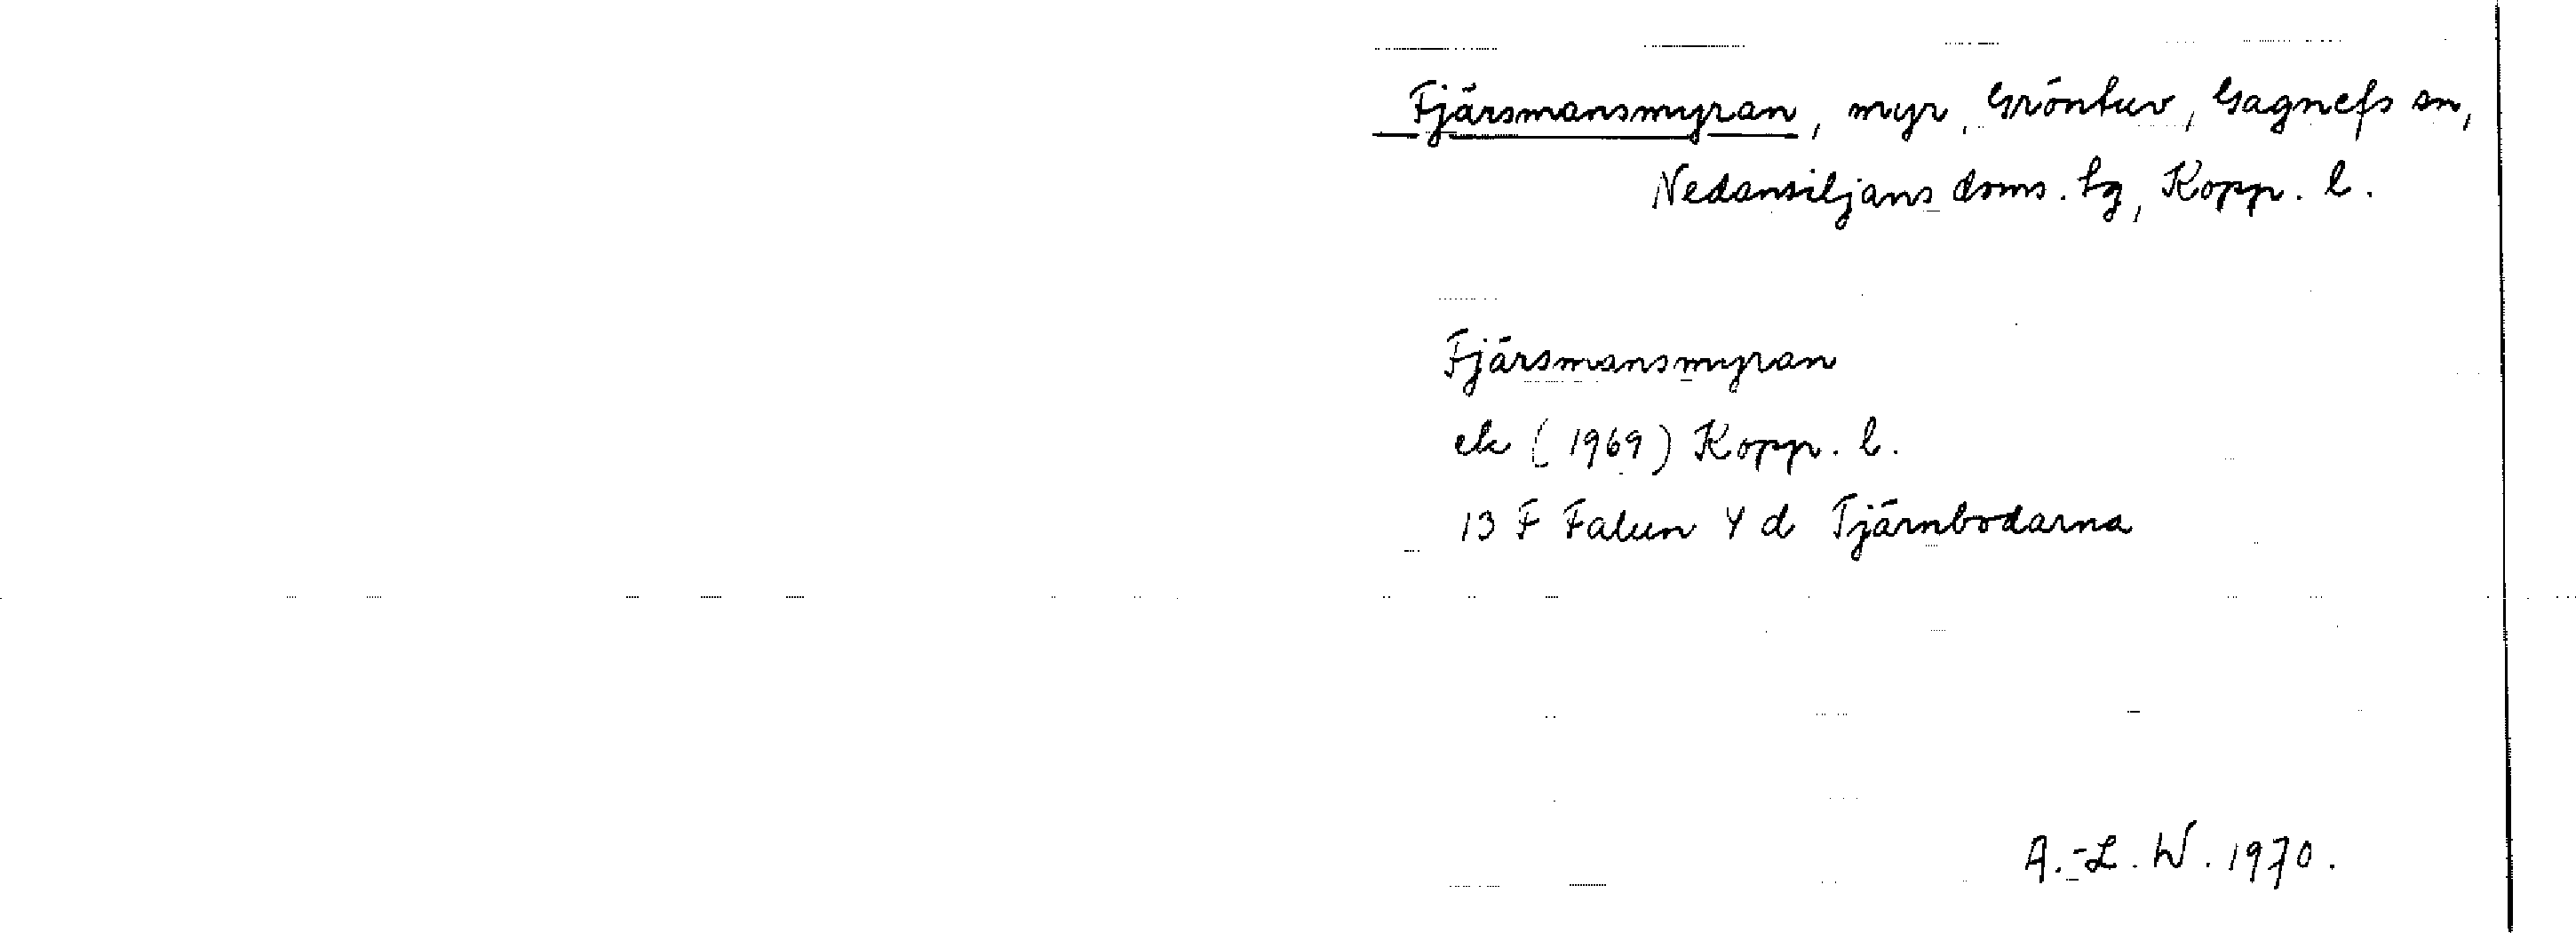 Fjärsmansmyran, myr, Gröntuv, Gagnefs sn,
Nedansiljans doms. tg, Kopp. l.
Fjärsmansmyran
ek (1969) Kopp. l.
13 F Falun 4 d Tjärnbodarna
A.-L. W. 1970.